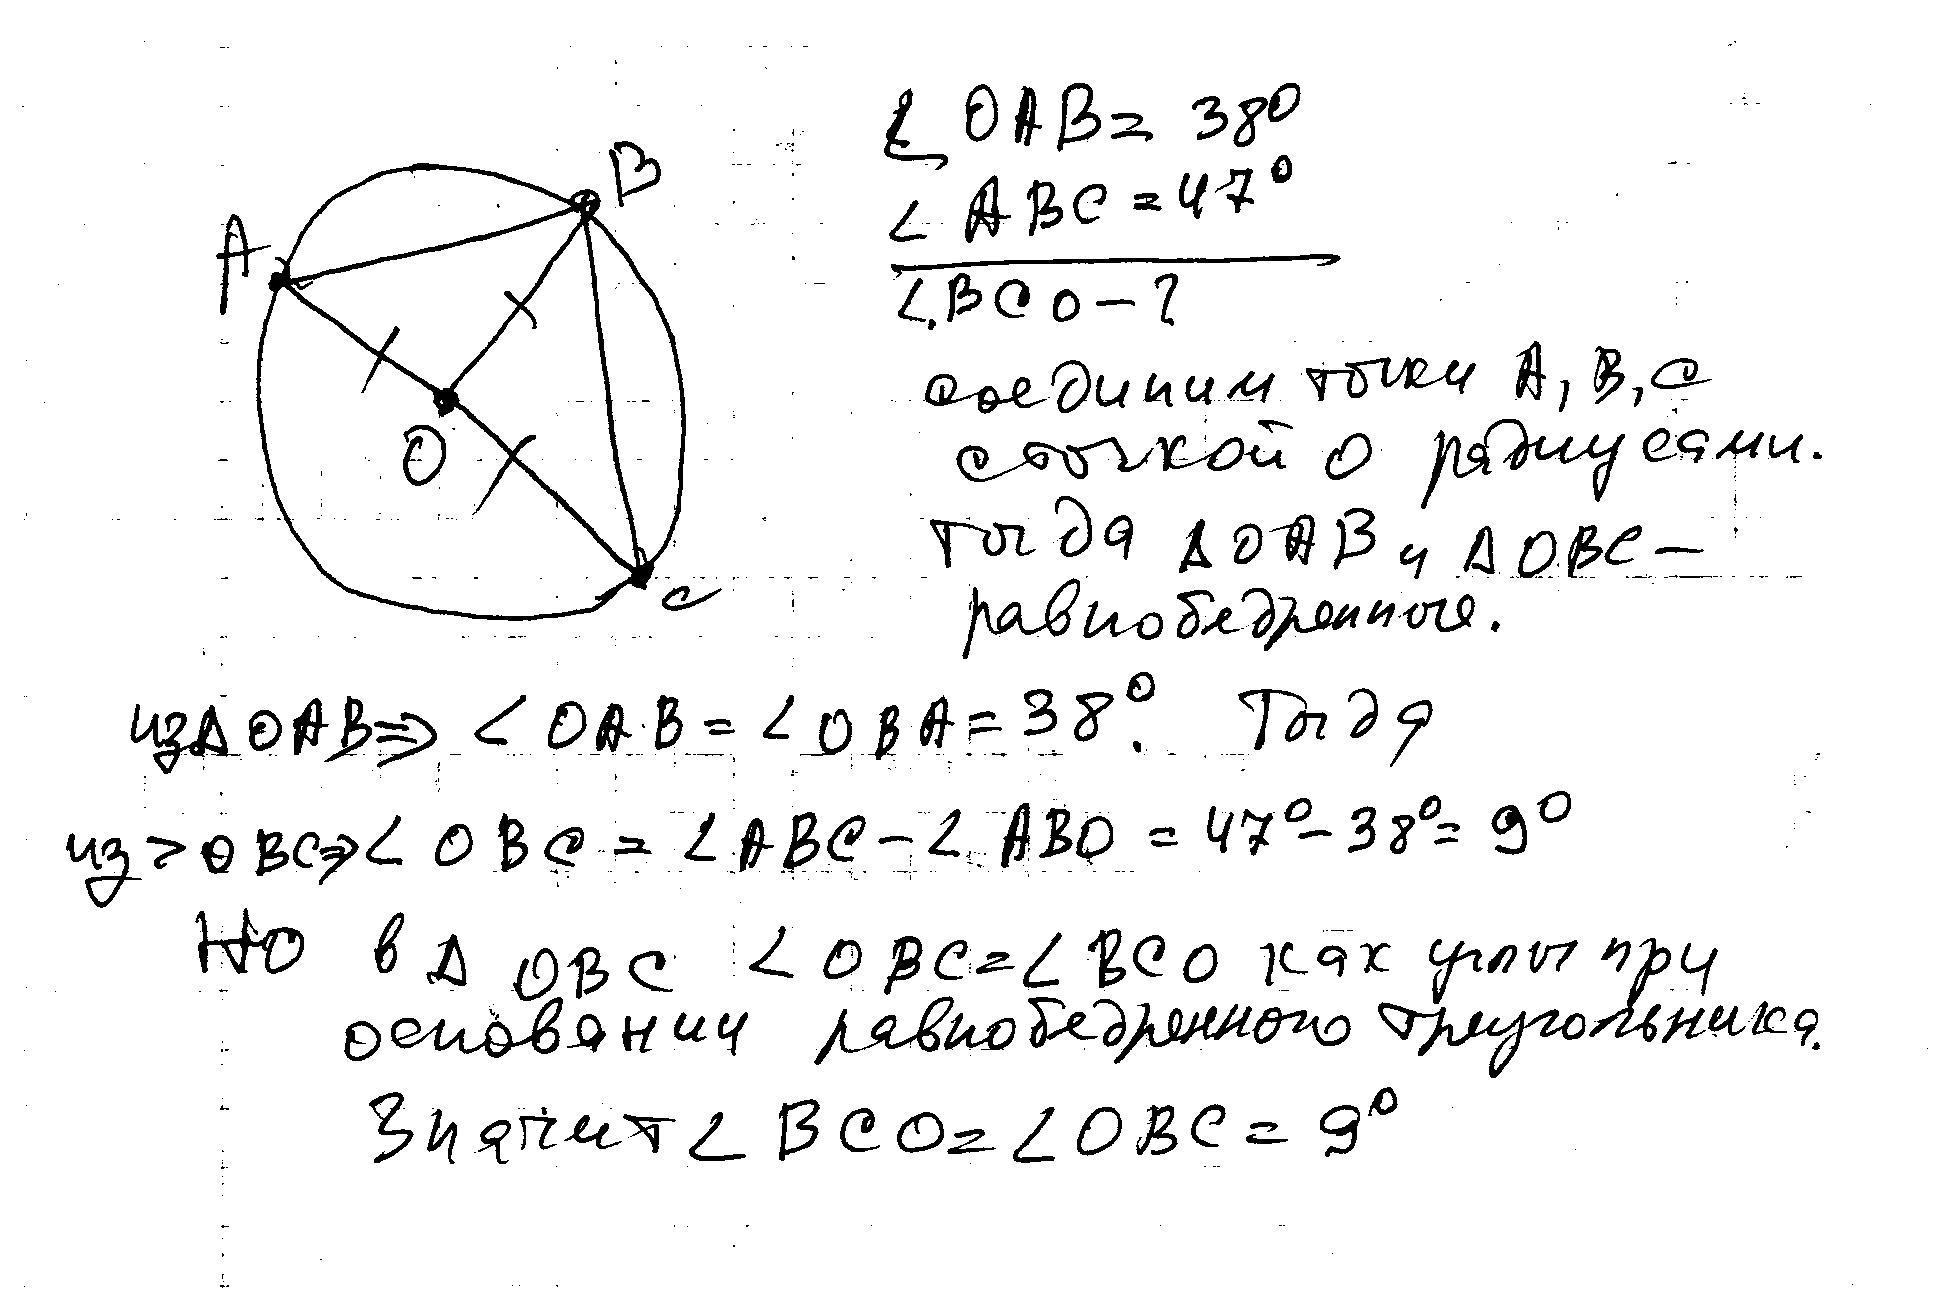 A
B
O
C
∠ OAB = 38°
∠ ABC = 47°
∠BCO - ?
соединим точки A, B, C
с точкой O радиусами.
тогда ΔOAB и ΔOBC –
равнобедренные.
из Δ OAB ⇒ ∠ OAB = ∠ OBA = 38°. Тогда
из > OBC ⇒ ∠ OBC = ∠ABC – ∠ ABO = 47° – 38° = 9°
НО в Δ OBC ∠ OBC = ∠ BCO как углы при
основании равнобедренного треугольника.
Значит ∠ BCO = ∠OBC = 9°